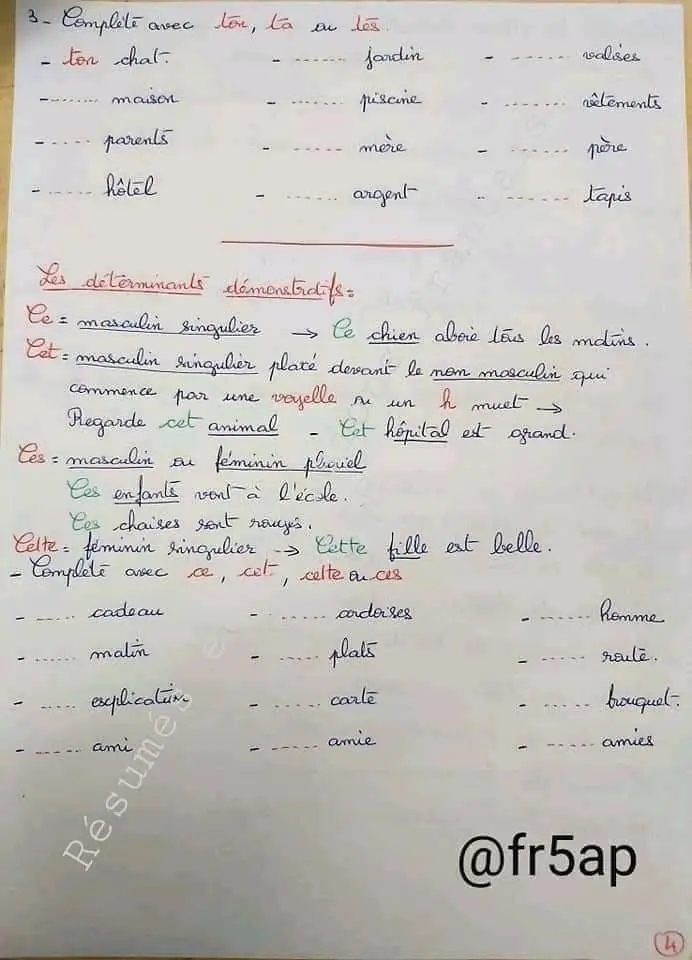 3 - Complète avec ton, ta ou tes.
- ton chat. - ...... jardin - ...... valises
- ...... maison - ...... piscine - ...... vêtements
- ...... parents - ...... mère - ...... père
- ...... hôtel - ...... argent - ...... tapis
Les déterminants démonstratifs =
Ce = masculin singulier → Ce chien aboie tous les matins.
Cet = masculin singulier placé devant le nom masculin qui
commence par une voyelle ou un h muet →
Regarde cet animal - Cet hôpital est grand.
Ces = masculin ou féminin pluriel
Ces enfants vont à l'école.
Ces chaises sont rouges.
Cette = féminin singulier → Cette fille est belle.
- Complète avec ce, cet, cette ou ces
- ...... cadeau - ...... ardoises - ...... homme
- ...... matin - ...... plats - ...... route.
- ...... explication - ...... carte - ...... bouquet.
- ...... ami - ...... amie - ...... amies
Résumés e
@fr5ap
4